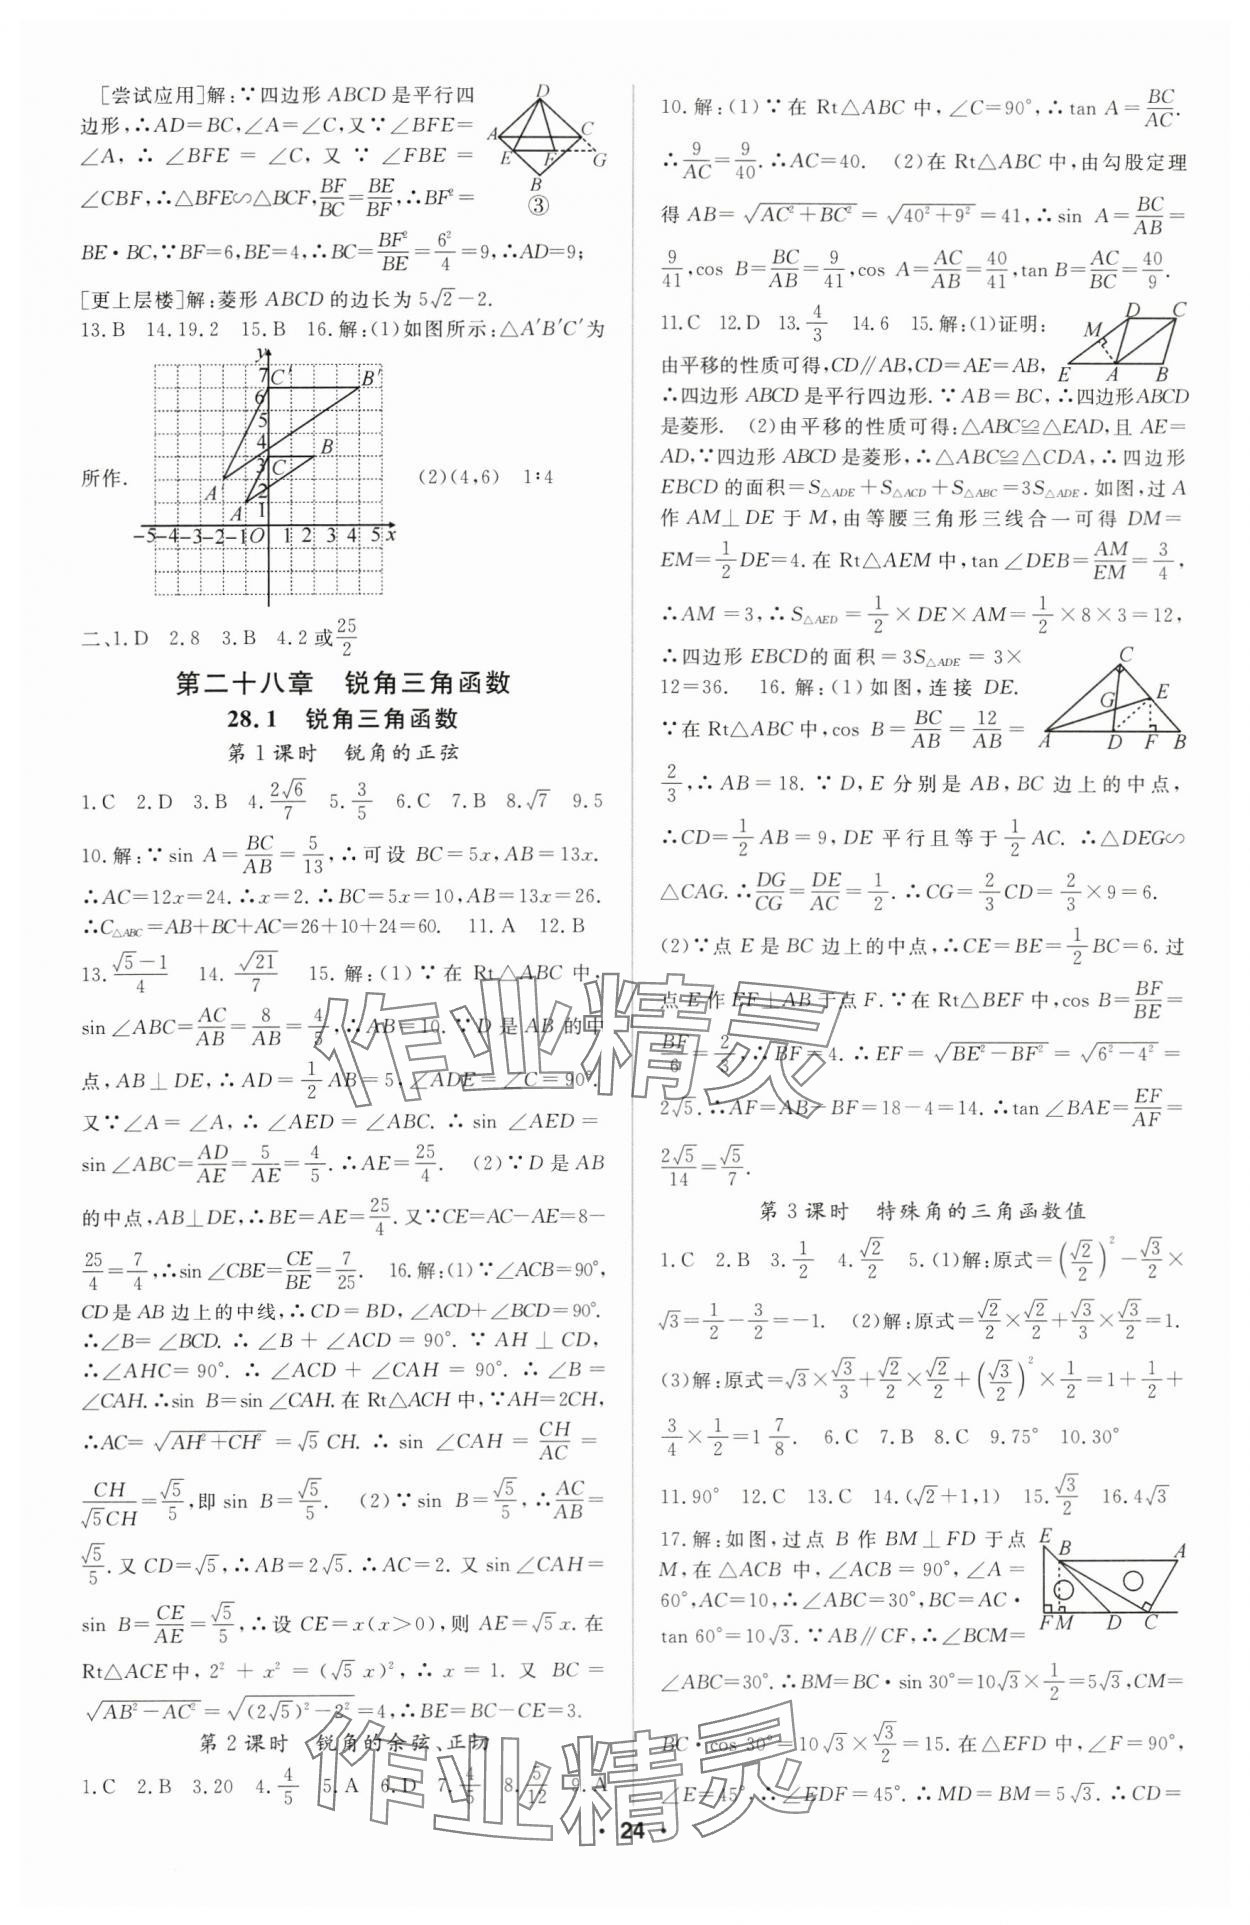 [尝试应用]解:∵四边形 ABCD 是平行四
边形,∴AD=BC,∠A=∠C,又∵∠BFE=
∠A,∴∠BFE=∠C,又∵∠FBE=
∠CBF,∴△BFE∽△BCF,BF/BC=BE/BF,∴BF²=
BE·BC,∵BF=6,BE=4,∴BC=BF²/BE=6²/4=9,∴AD=9;
D
A C
E F G
B
③
[更上层楼]解:菱形 ABCD 的边长为 5√2-2.
13.B 14.19.2 15.B 16.解:(1)如图所示:△A'B'C'为
y
7 C' B'
6
5
4
3 C B
所作. A' 2 (2)(4,6) 1:4
A 1
-5-4-3-2-1 O 1 2 3 4 5 x
二、1.D 2.8 3.B 4.2或25/2
第二十八章 锐角三角函数
28.1 锐角三角函数
第1课时 锐角的正弦
1.C 2.D 3.B 4.2√6/7 5.3/5 6.C 7.B 8.√7 9.5
10.解:∵sin A=BC/AB=5/13,∴可设 BC=5x,AB=13x.
∴AC=12x=24.∴x=2.∴BC=5x=10,AB=13x=26.
∴C△ABC=AB+BC+AC=26+10+24=60. 11.A 12.B
13.(√5-1)/4 14.√21/7 15.解:(1)∵在 Rt△ABC 中,
sin∠ABC=AC/AB=8/AB=4/5,∴AB=10.∵D是 AB 的中
点,AB⊥DE,∴AD=1/2AB=5,∠ADE=∠C=90°.
又∵∠A=∠A,∴∠AED=∠ABC.∴sin∠AED=
sin∠ABC=AD/AE=5/AE=4/5.∴AE=25/4. (2)∵D 是 AB
的中点,AB⊥DE,∴BE=AE=25/4.又∵CE=AC-AE=8-
25/4=7/4,∴sin∠CBE=CE/BE=7/25. 16.解:(1)∵∠ACB=90°,
CD是AB边上的中线,∴CD=BD,∠ACD+∠BCD=90°.
∴∠B=∠BCD.∴∠B+∠ACD=90°.∵AH⊥CD,
∴∠AHC=90°.∴∠ACD+∠CAH=90°.∴∠B=
∠CAH.∴sin B=sin∠CAH.在 Rt△ACH 中,∵AH=2CH,
∴AC=√(AH²+CH²)=√5CH.∴sin∠CAH=CH/AC=
CH/√5CH=√5/5,即 sin B=√5/5. (2)∵sin B=√5/5,∴AC/AB=
√5/5.又 CD=√5,∴AB=2√5.∴AC=2.又 sin∠CAH=
sin B=CE/AE=√5/5,∴设 CE=x(x>0),则 AE=√5x.在
Rt△ACE中,2²+x²=(√5x)²,∴x=1.又 BC=
√(AB²-AC²)=√((2√5)²-2²)=4,∴BE=BC-CE=3.
第2课时 锐角的余弦、正切
1.C 2.B 3.20 4.4/5 5.A 6.D 7.4/5 8.5/12 9.A
10.解:(1)∵在 Rt△ABC 中,∠C=90°,∴tan A=BC/AC.
∴9/AC=9/40.∴AC=40. (2)在 Rt△ABC 中,由勾股定理
得 AB=√(AC²+BC²)=√(40²+9²)=41,∴sin A=BC/AB=
9/41,cos B=BC/AB=9/41,cos A=AC/AB=40/41,tan B=AC/BC=40/9.
11.C 12.D 13.4/3 14.6 15.解:(1)证明:
由平移的性质可得,CD∥AB,CD=AE=AB,
D C
M
E A B
∴四边形 ABCD 是平行四边形.∵AB=BC,∴四边形ABCD
是菱形. (2)由平移的性质可得:△ABC≌△EAD,且 AE=
AD,∵四边形 ABCD 是菱形,∴△ABC≌△CDA,∴四边形
EBCD 的面积=S△ADE+S△ACD+S△ABC=3S△ADE.如图,过 A
作 AM⊥DE 于 M,由等腰三角形三线合一可得 DM=
EM=1/2DE=4.在 Rt△AEM 中,tan∠DEB=AM/EM=3/4,
∴AM=3,∴S△AED=1/2×DE×AM=1/2×8×3=12,
∴四边形 EBCD的面积=3S△ADE=3×
12=36. 16.解:(1)如图,连接 DE.
∵在 Rt△ABC 中,cos B=BC/AB=12/AB=
C
G E
A D F B
2/3,∴AB=18.∵D,E 分别是 AB,BC 边上的中点,
∴CD=1/2AB=9,DE 平行且等于1/2AC.∴△DEG∽
△CAG.∴DG/CG=DE/AC=1/2.∴CG=2/3CD=2/3×9=6.
(2)∵点 E 是 BC 边上的中点,∴CE=BE=1/2BC=6.过
点 E作 EF⊥AB 于点 F.∵在 Rt△BEF 中,cos B=BF/BE=
BF/6=2/3,∴BF=4.∴EF=√(BE²-BF²)=√(6²-4²)=
2√5.∴AF=AB-BF=18-4=14.∴tan∠BAE=EF/AF=
2√5/14=√5/7.
第3课时 特殊角的三角函数值
1.C 2.B 3.1/2 4.√2/2 5.(1)解:原式=(√2/2)²-√3/2×
√3=1/2-3/2=-1. (2)解:原式=√2/2×√2/2+√3/3×√3/2=1.
(3)解:原式=√3×√3/3+√2/2×√2/2+(√3/2)²×1/2=1+1/2+
3/4×1/2=1 7/8. 6.C 7.B 8.C 9.75° 10.30°
11.90° 12.C 13.C 14.(√2+1,1) 15.√3/2 16.4√3
17.解:如图,过点 B 作 BM⊥FD 于点
M,在△ACB 中,∠ACB=90°,∠A=
60°,AC=10,∴∠ABC=30°,BC=AC·
tan 60°=10√3.∵AB∥CF,∴∠BCM=
E B A
F M D C
∠ABC=30°.∴BM=BC·sin 30°=10√3×1/2=5√3,CM=
BC·cos 30°=10√3×√3/2=15.在△EFD 中,∠F=90°,
∠E=45°,∴∠EDF=45°.∴MD=BM=5√3.∴CD=
·24·
作业精灵
作业精灵